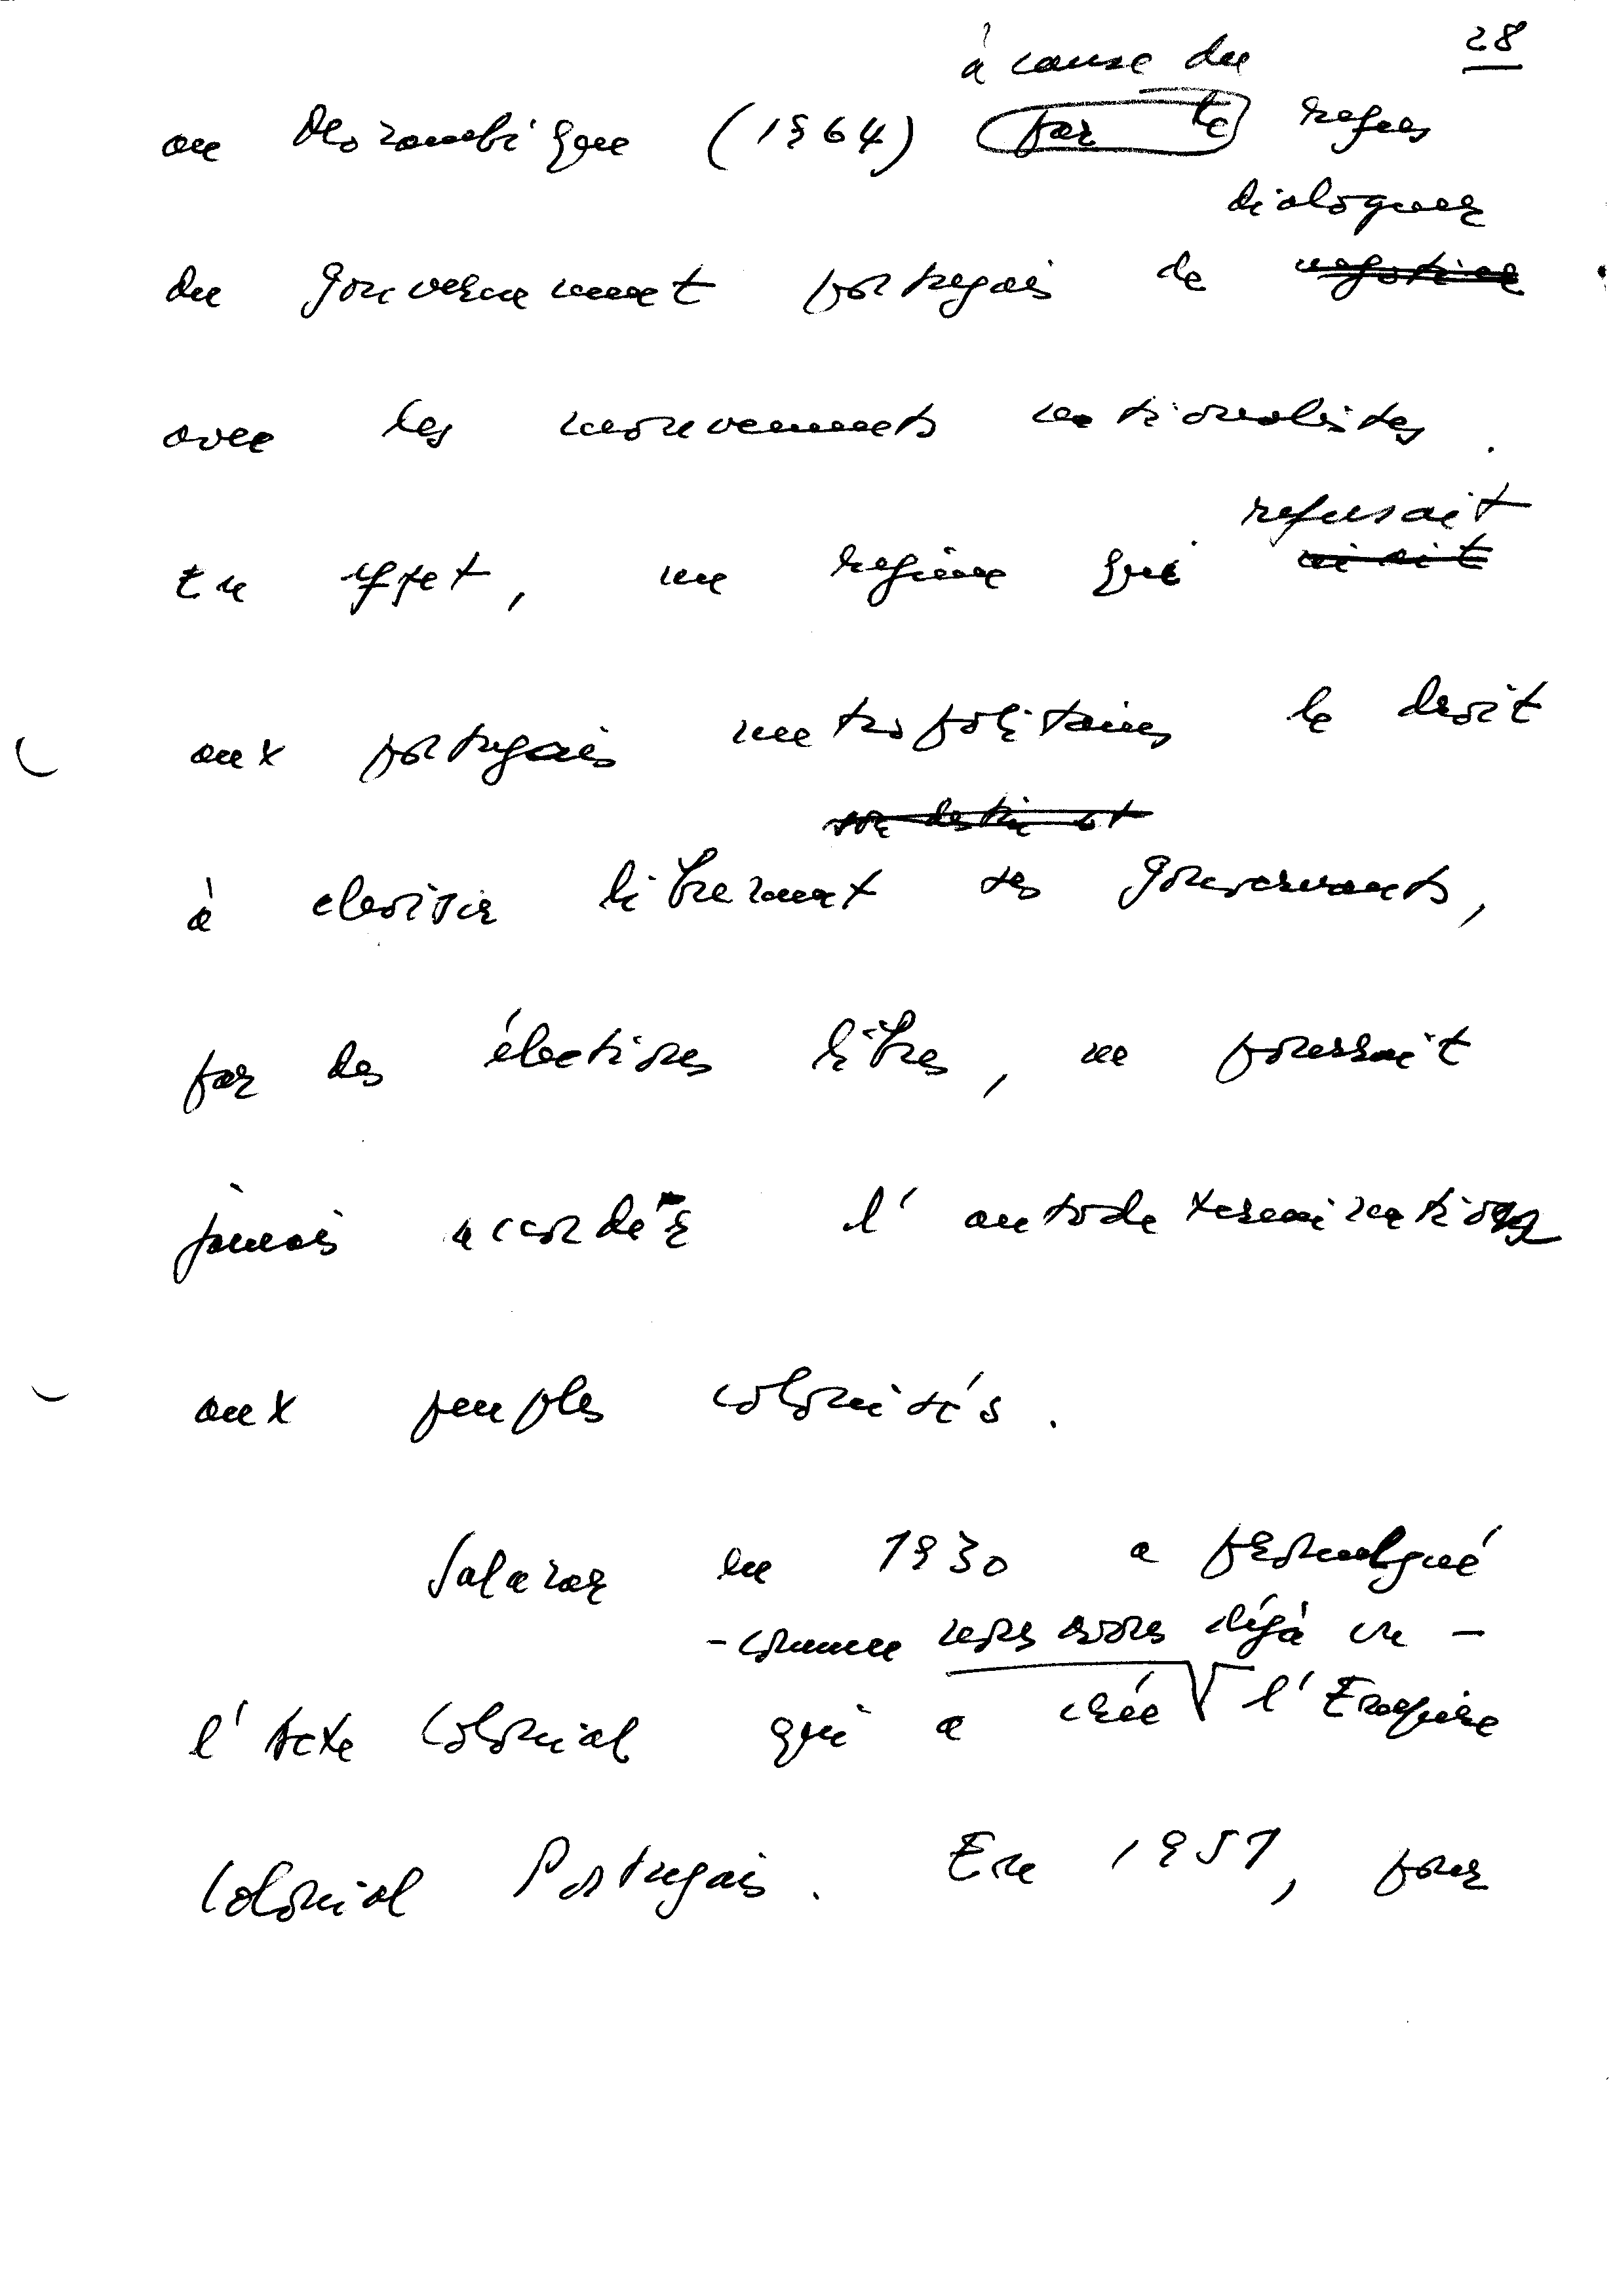 28
à cause du
au Mozambique (1964) par le refus
dialoguer
du gouvernement portugais de negocier
avec les mouvements nationalistes.
refusait
En effet, un regime qui niait
aux portugais metropolitains le droit
son destin et
à choisir librement ses gouvernants,
par des élections libres, ne pourrait
jamais accorder l'autodetermination
aux peuples colonisés.
Salazar en 1930 a promulgué
- comme nous avons déjà vu -
l'Acte Colonial qui a créé l'Empire
Colonial Portugais. En 1951, pour